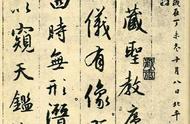 在丁未冬月八日北平
藏聖教序
儀有像
四時無形潛
以窺天鑑